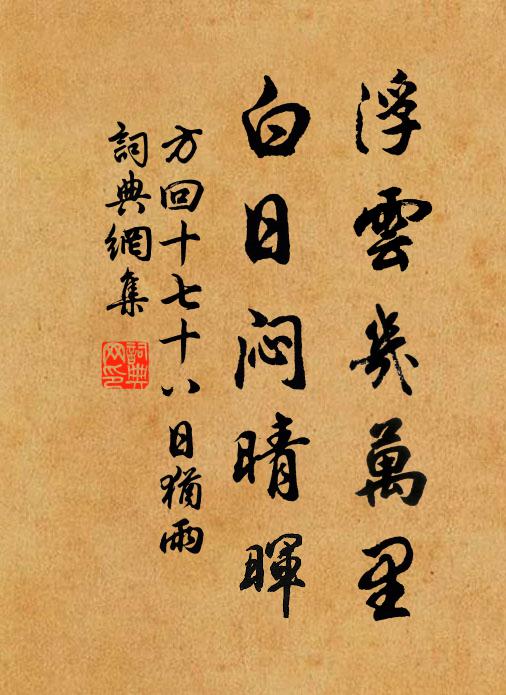 浮雲幾萬里
白日悶晴暉
方回十七十八日猶雨
詞典網集
詞典网印